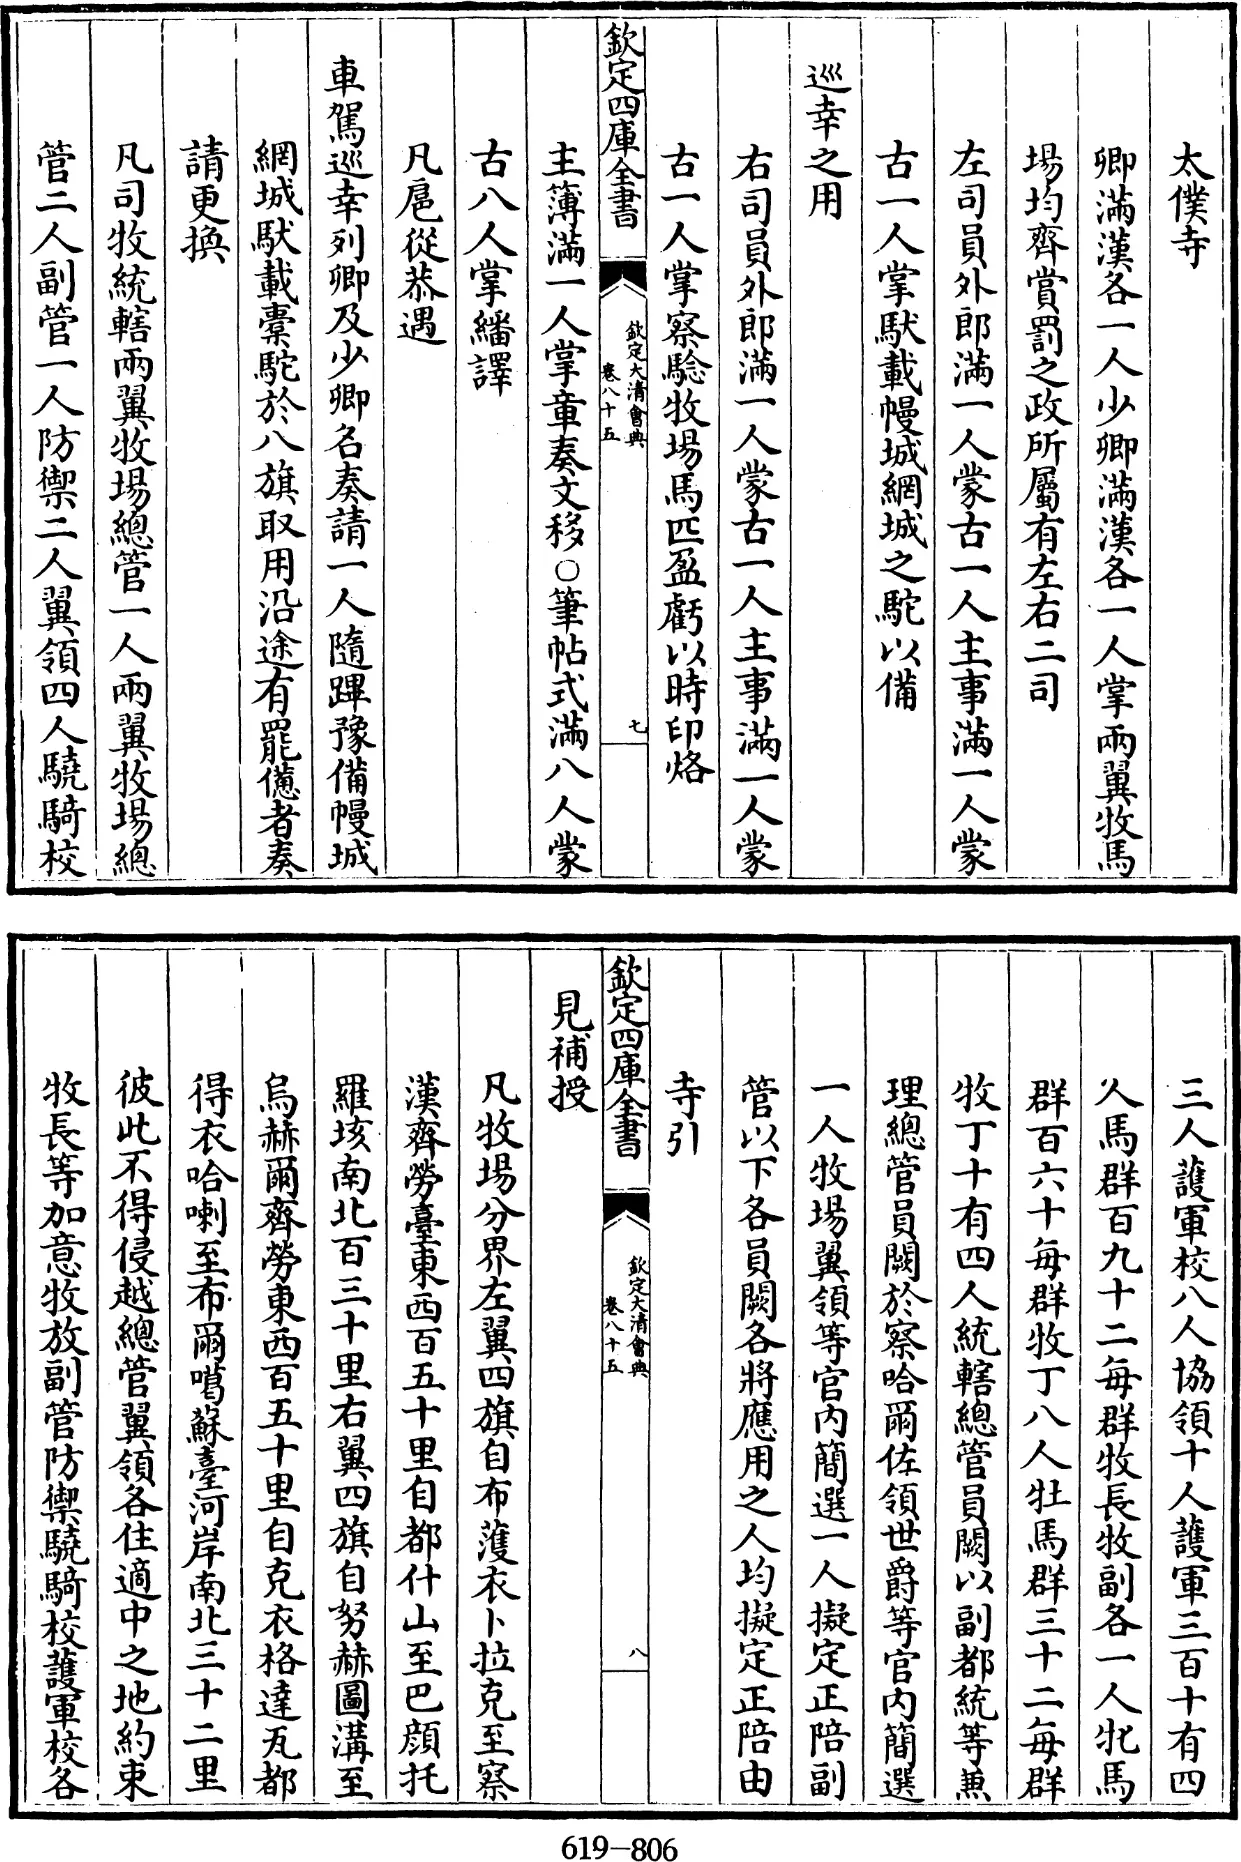 太僕寺
卿滿漢各一人少卿滿漢各一人掌兩翼牧馬
場均齊賞罰之政所屬有左右二司
左司員外郎滿一人蒙古一人主事滿一人蒙
古一人掌馱載幔城網城之駝以備
巡幸之用
右司員外郎滿一人蒙古一人主事滿一人蒙
古一人掌察驗牧場馬匹盈虧以時印烙
欽定四庫全書
欽定大清會典
卷八十五
七
主簿滿一人掌章奏文移○筆帖式滿八人蒙
古八人掌繙譯
凡扈從恭遇
車駕巡幸列卿及少卿名奏請一人隨蹕豫備幔城
網城馱載橐駝於八旗取用沿途有罷憊者奏
請更換
凡司牧統轄兩翼牧場總管一人兩翼牧場總
管二人副管一人防禦二人翼領四人驍騎校
三人護軍校八人協領十人護軍三百十有四
人馬群百九十二每群牧長牧副各一人牝馬
群百六十每群牧丁八人牡馬群三十二每群
牧丁十有四人統轄總管員闕以副都統等兼
理總管員闕於察哈爾佐領世爵等官內簡選
一人牧場翼領等官內簡選一人擬定正陪副
管以下各員闕各將應用之人均擬定正陪由
寺引
欽定四庫全書
欽定大清會典
卷八十五
八
見補授
凡牧場分界左翼四旗自布濩衣卜拉克至察
漢齊勞臺東西百五十里自都什山至巴顏托
羅垓南北百三十里右翼四旗自努赫圖溝至
烏赫爾齊勞東西百五十里自克衣格達瓦都
得衣哈喇至布爾噶蘇臺河岸南北三十二里
彼此不得侵越總管翼領各住適中之地約束
牧長等加意牧放副管防禦驍騎校護軍校各
619-806